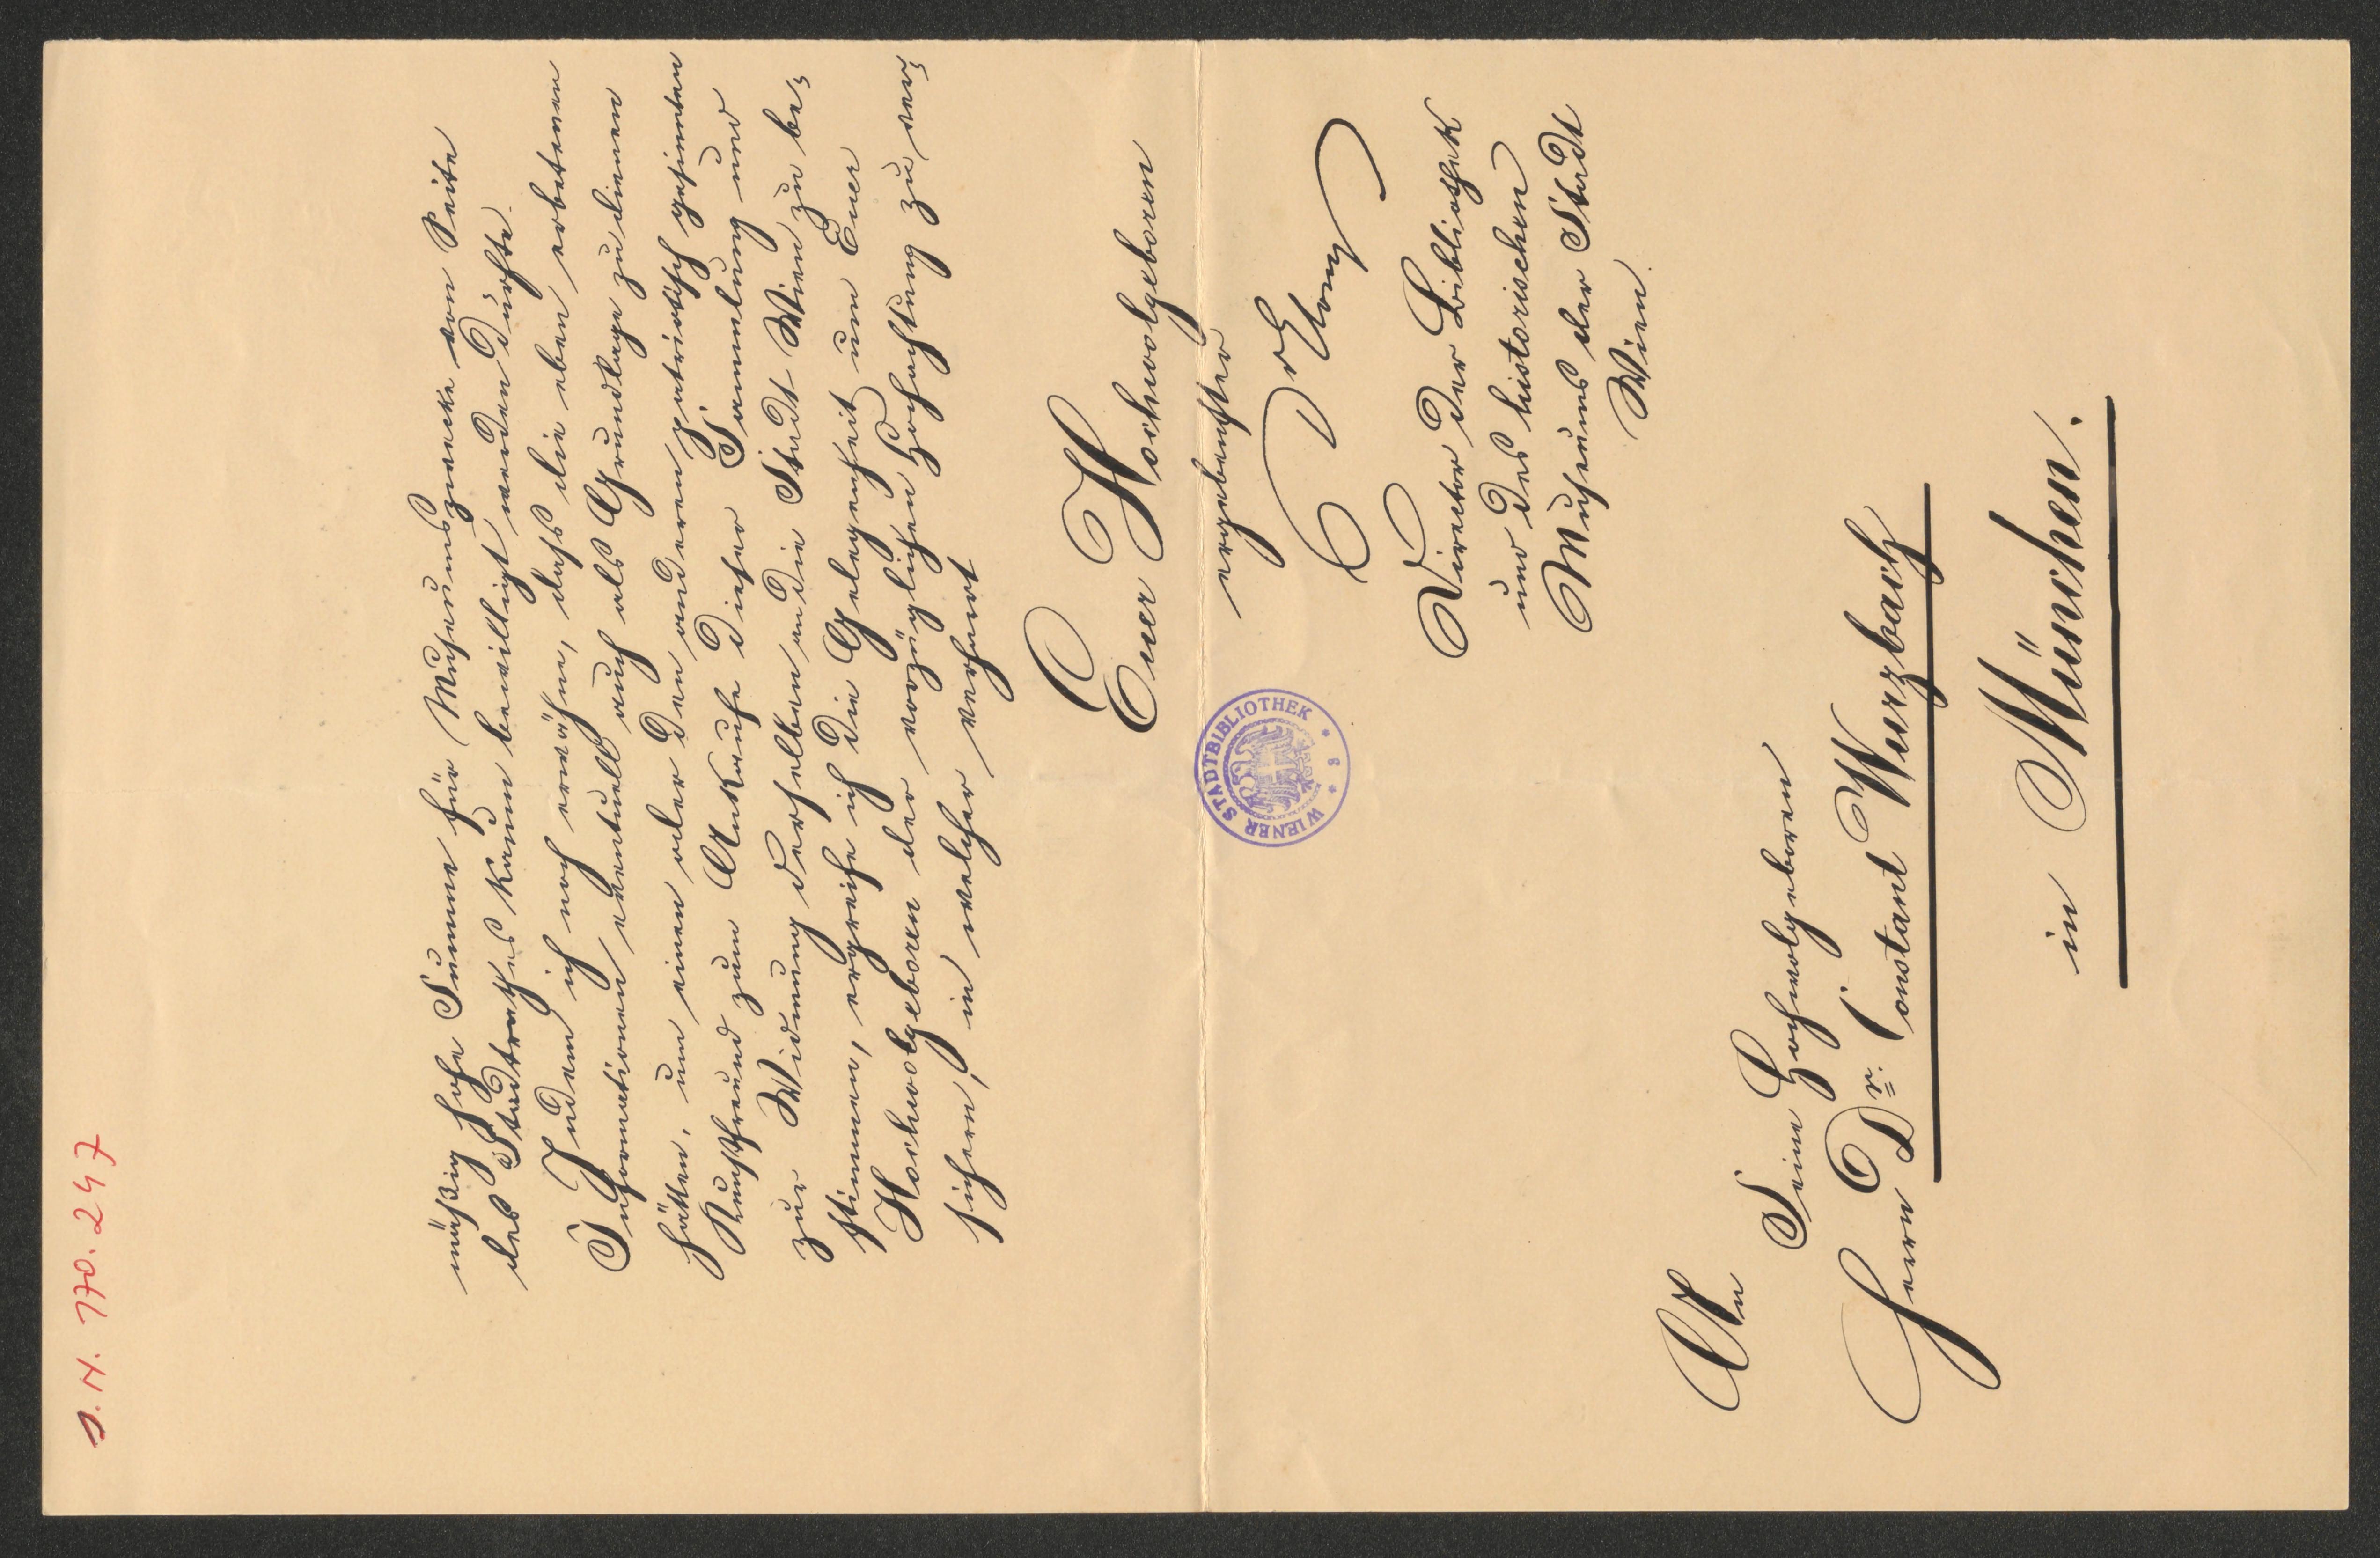 I. N. 170.247
mäßig hohe Summe für Museumszwecke von Seite
des Stadtrathes kaum bewilligt werden dürfte.
Indem ich noch erwähne, dass die eben erbetenen
Informationen eventuell auch als Grundlage zu dienen
hätten, um einen oder den anderen patriotisch gesinnten
Kunstfreund zum Ankaufe dieser Sammlung und
zur Widmung derselben an die Stadt Wien zu be-
stimmen, ergreife ich die Gelegenheit um Euer
Hochwolgeboren der vorzüglichen Hochachtung zu ver-
sichern, in welcher verharrt
Euer Hochwolgeboren
ergebenster
Dr Glossy
Director der Bibliothek
und des historischen
Museums der Stadt
Wien.
WIENER STADTBIBLIOTHEK * 3 *
An
Seine Hochwolgeboren
Herrn Dr. Constant Wurzbach
in München.